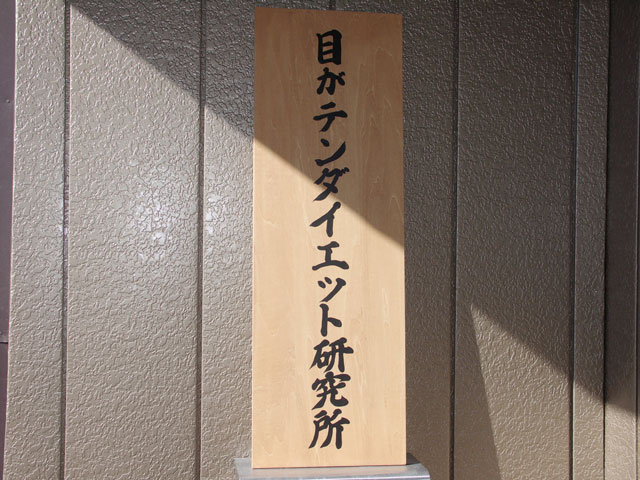 目がテンダイエット研究所